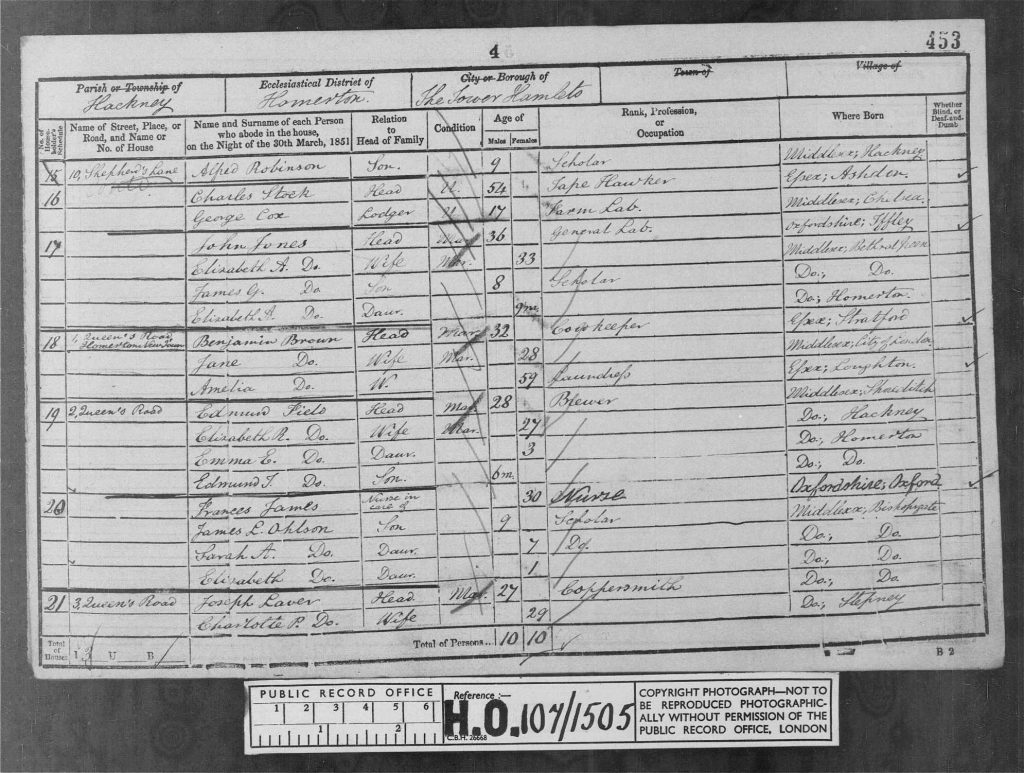 453
4
Parish or Township of Ecclesiastical District of City or Borough of Town of Village of
Hackney Homerton. The Tower Hamlets
No. of Householder's Schedule Name of Street, Place, or Road, and Name or No. of House Name and Surname of each Person who abode in the house, on the Night of the 30th March, 1851 Relation to Head of Family Condition Age of Males Females Rank, Profession, or Occupation Where Born Whether Blind, or Deaf-and-Dumb
15 10, Shepherd's Lane Alfred Robinson Son. 9 Scholar Middlesex; Hackney
16 Charles Stock Head U. 54 Tape Hawker Essex; Ashdon.
George Cox Lodger U. 17 Farm Lab. Middlesex; Chelsea.
17 John Jones Head Mar. 36 General Lab. Oxfordshire; Iffley
Elizabeth A. Do. Wife Mar. 33 Middlesex; Bethnal Green
James G. Do. Son 8 Scholar Do.; Do.
Elizabeth A. Do. Daur. 9m. Do.; Homerton.
18 1, Queen's Road Homerton New Town Benjamin Brown Head Mar. 32 Cowkeeper Essex; Stratford
Jane Do. Wife Mar. 28 Middlesex; City of London
Amelia Do. W. 59 Laundress Essex; Loughton.
19 2, Queen's Road Edmund Field Head Mar. 28 Brewer Middlesex; Shoreditch
Elizabeth R. Do. Wife Mar. 27 Do.; Hackney
Emma E. Do. Daur. 3 Do.; Homerton
Edmund T. Do. Son. 6m. Do.; Do.
20 Frances James Nurse in care of 30 Nurse Oxfordshire; Oxford
James L. Ohlson Son 9 Scholar Middlesex; Bishopsgate
Sarah A. Do. Daur. 7 Do. Do.; Do.
Elizabeth Do. Daur. 1 Do.; Do.
21 3, Queen's Road Joseph Laver Head Mar. 27 Coppersmith Do.; Do.
Charlotte P. Do. Wife 29 Do.; Stepney
Total of Houses I 3 U B Total of Persons... 10 10
B 2
PUBLIC RECORD OFFICE
1 2 3 4 5 6
1 2
Reference :—
H.O. 107/1505
C.B.H. 26668
COPYRIGHT PHOTOGRAPH—NOT TO
BE REPRODUCED PHOTOGRAPHIC-
ALLY WITHOUT PERMISSION OF THE
PUBLIC RECORD OFFICE, LONDON